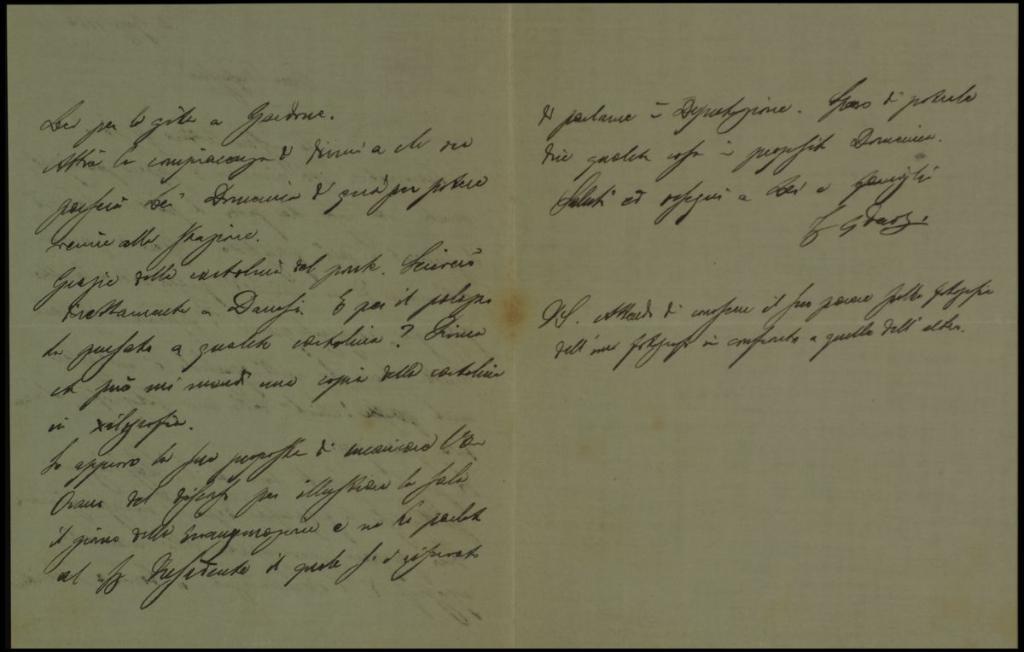 Lei per la gita a Gardone.
Abbia la compiacenza di dirmi a che ora
passerà Lei Domenica di qua per potere
venire alla stazione.
Grazie delle cartoline del ponte. Scriverò
direttamente a Danesi. E per il palazzo
ha pensato a qualche cartolina?
che può mi mandi una copia della cartolina
in xilografia.
Io approvo la sua proposta di incaricare l'On.
del discorso per illustrare la sala
il giorno della inaugurazione e ne ho parlato
al Presidente il quale si è riservato
di parlarne in Deputazione. Spero di poterle
dire qualche cosa in proposito Domenica.
Saluti ed ossequi a Lei e famiglia
PS. Attendo di conoscere il suo parere sulle fotografie
dell'uno fotografo in confronto a quelle dell'altro.